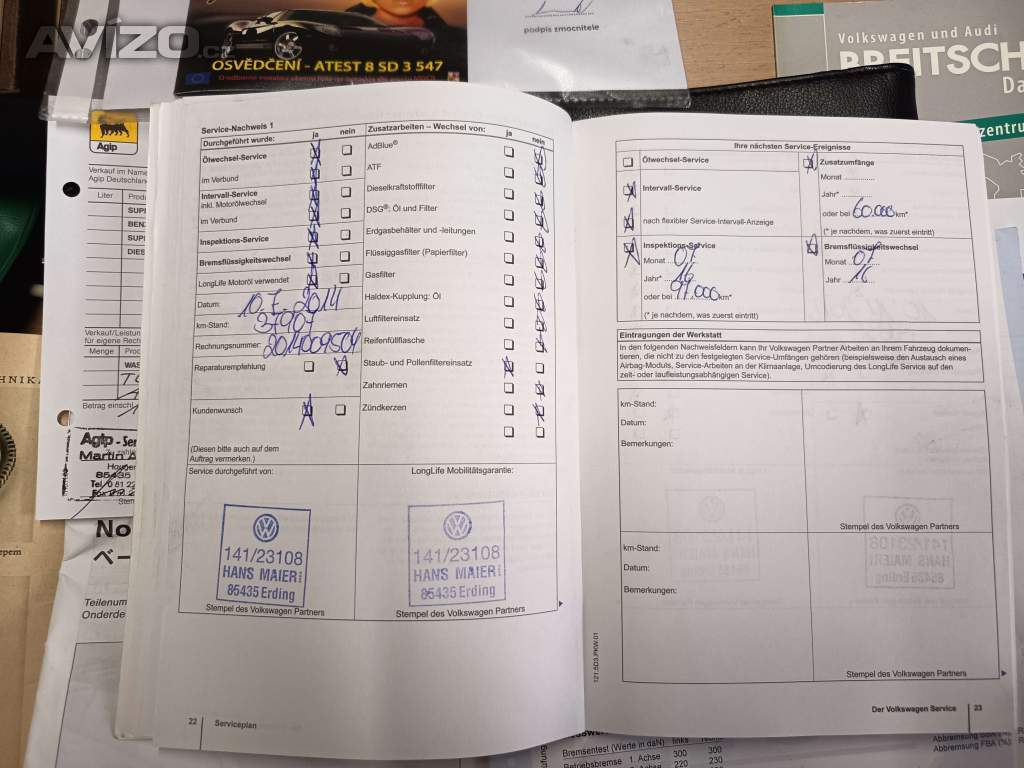 AVÍZO.cz
OSVĚDČENÍ - ATEST 8 SD 3 547
podpis zmocnitele
Volkswagen und Audi
BREITSCH
Da
zentrum
Agip
Verkauf im Name
Agip Deutschlan
Liter
SUP
BEN
SUP
DIES
Verkauf/Leistun
für eigene Rech
Menge
WAS
Betrag einschl
Agip - Ser
Martin A
85435
No
ベー
Teilenum
Onderde
Service-Nachweis 1
Durchgeführt wurde: ja nein
Ölwechsel-Service
im Verbund
Intervall-Service
inkl. Motorölwechsel
im Verbund
Inspektions-Service
Bremsflüssigkeitswechsel
LongLife Motoröl verwendet
Datum: 10.7.2014
km-Stand: 37907
Rechnungsnummer: 2014009504
Reparaturempfehlung
Kundenwunsch
(Diesen bitte auch auf dem
Auftrag vermerken.)
Zusatzarbeiten – Wechsel von: ja nein
AdBlue®
ATF
Dieselkraftstofffilter
DSG®: Öl und Filter
Erdgasbehälter und -leitungen
Flüssiggasfilter (Papierfilter)
Gasfilter
Haldex-Kupplung: Öl
Luftfiltereinsatz
Reifenfüllflasche
Staub- und Pollenfiltereinsatz
Zahnriemen
Zündkerzen
Service durchgeführt von:
141/23108
HANS MAIER
85435 Erding
Stempel des Volkswagen Partners
LongLife Mobilitätsgarantie:
141/23108
HANS MAIER
85435 Erding
Stempel des Volkswagen Partners
22 Serviceplan
Ihre nächsten Service-Ereignisse
Ölwechsel-Service
Intervall-Service
nach flexibler Service-Intervall-Anzeige
Zusatzumfänge
Monat
Jahr*
oder bei 60.000 km*
(* je nachdem, was zuerst eintritt)
Inspektions-Service
Monat 07
Jahr* 16
oder bei 97.000 km*
(* je nachdem, was zuerst eintritt)
Bremsflüssigkeitswechsel
Monat 07
Jahr 16
Eintragungen der Werkstatt
In den folgenden Nachweisfeldern kann Ihr Volkswagen Partner Arbeiten an Ihrem Fahrzeug dokumen-
tieren, die nicht zu den festgelegten Service-Umfängen gehören (beispielsweise den Austausch eines
Airbag-Moduls, Service-Arbeiten an der Klimaanlage, Umcodierung des LongLife Service auf den
zeit- oder laufleistungsabhängigen Service).
km-Stand:
Datum:
Bemerkungen:
Stempel des Volkswagen Partners
km-Stand:
Datum:
Bemerkungen:
Stempel des Volkswagen Partners
121.5D3.PKW.01
Der Volkswagen Service 23
Bremsentest (Werte in daN) links
Betriebsbremse 1. Achse 300 230
2. Achse 220 230
Abbremsung FBA (%):